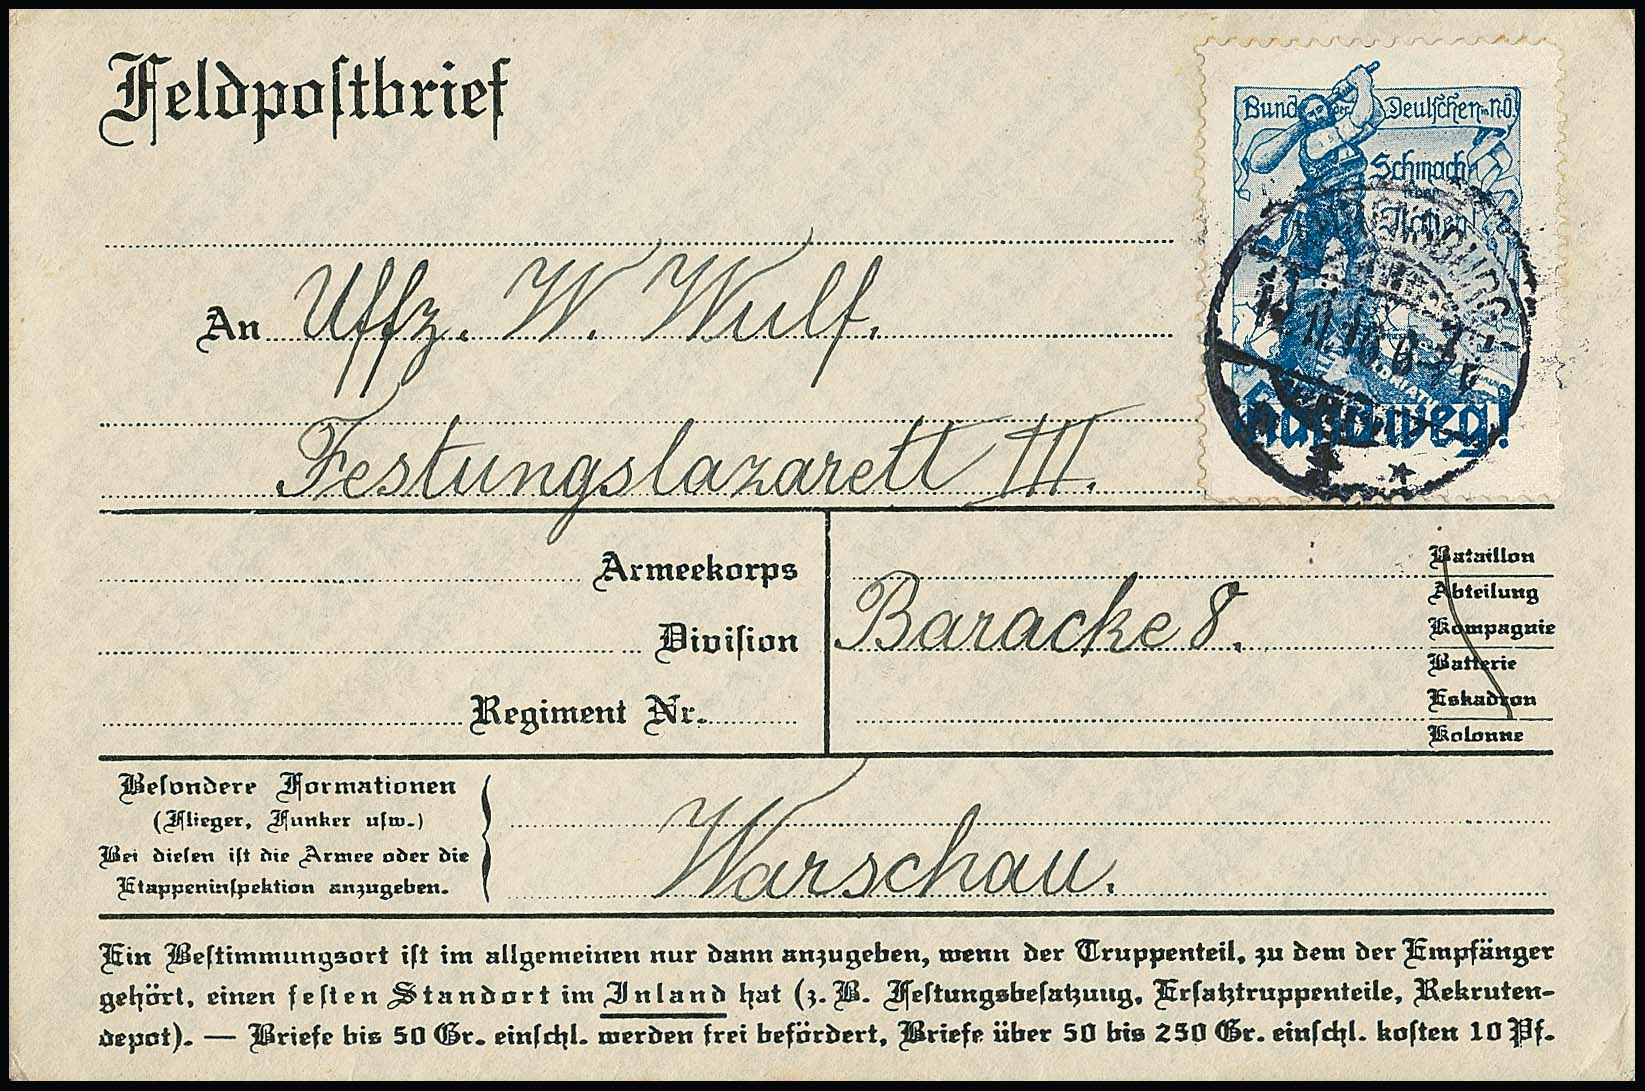 Feldpostbrief
Bund der Deutschen i. N.Ö.
Schmach
über
Italien!
Hand weg!
11.16.8-
An Uffz. W. Wulf.
Festungslazarett III.
Armeekorps
Division
Regiment Nr.
Baracke 8.
Bataillon
Abteilung
Kompagnie
Batterie
Eskadron
Kolonne
Besondere Formationen
(Flieger, Funker usw.)
Bei diesen ist die Armee oder die
Etappeninspektion anzugeben.
Warschau.
Ein Bestimmungsort ist im allgemeinen nur dann anzugeben, wenn der Truppenteil, zu dem der Empfänger
gehört, einen festen Standort im Inland hat (z. B. Festungsbesatzung, Ersatztruppenteile, Rekruten-
depot). — Briefe bis 50 Gr. einschl. werden frei befördert, Briefe über 50 bis 250 Gr. einschl. kosten 10 Pf.